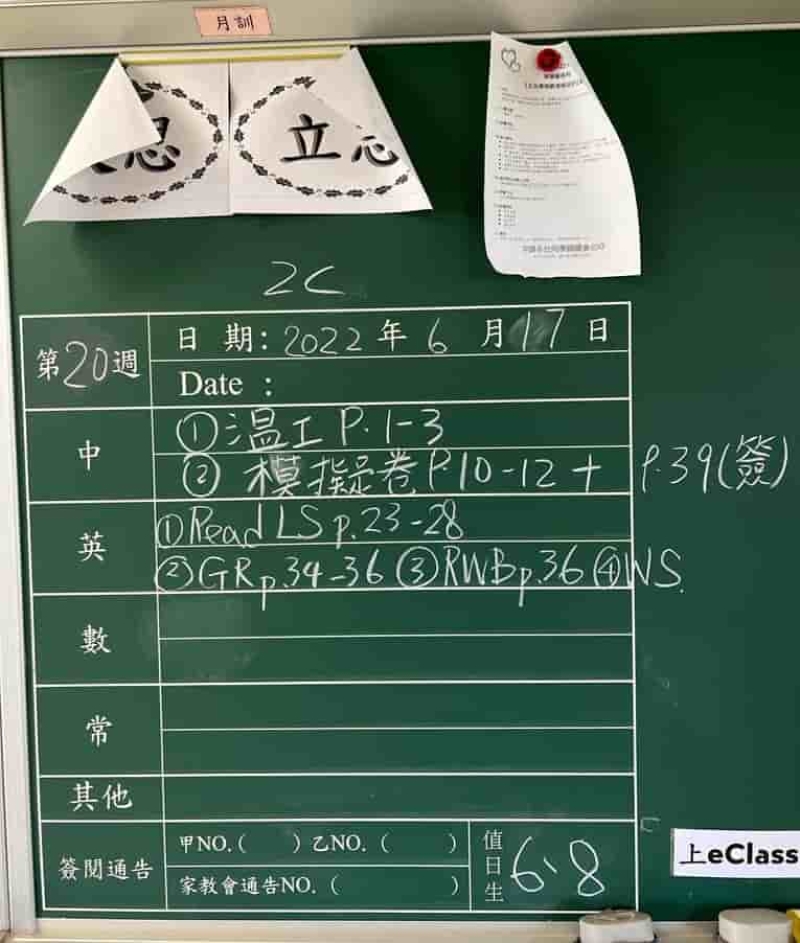 月訓
思
立志
2C
第20週
日 期: 2022 年 6 月 17 日
Date :
中
① 温工 P.1-3
② 模擬卷 P.10-12 + P.39(簽)
英
① Read LS p.23-28
② GR p.34-36 ③ RWB p.36 ④ WS.
數
常
其他
簽閱通告
甲NO.( ) 乙NO. ( )
家教會通告NO. ( )
值日生
6、8
上eClass